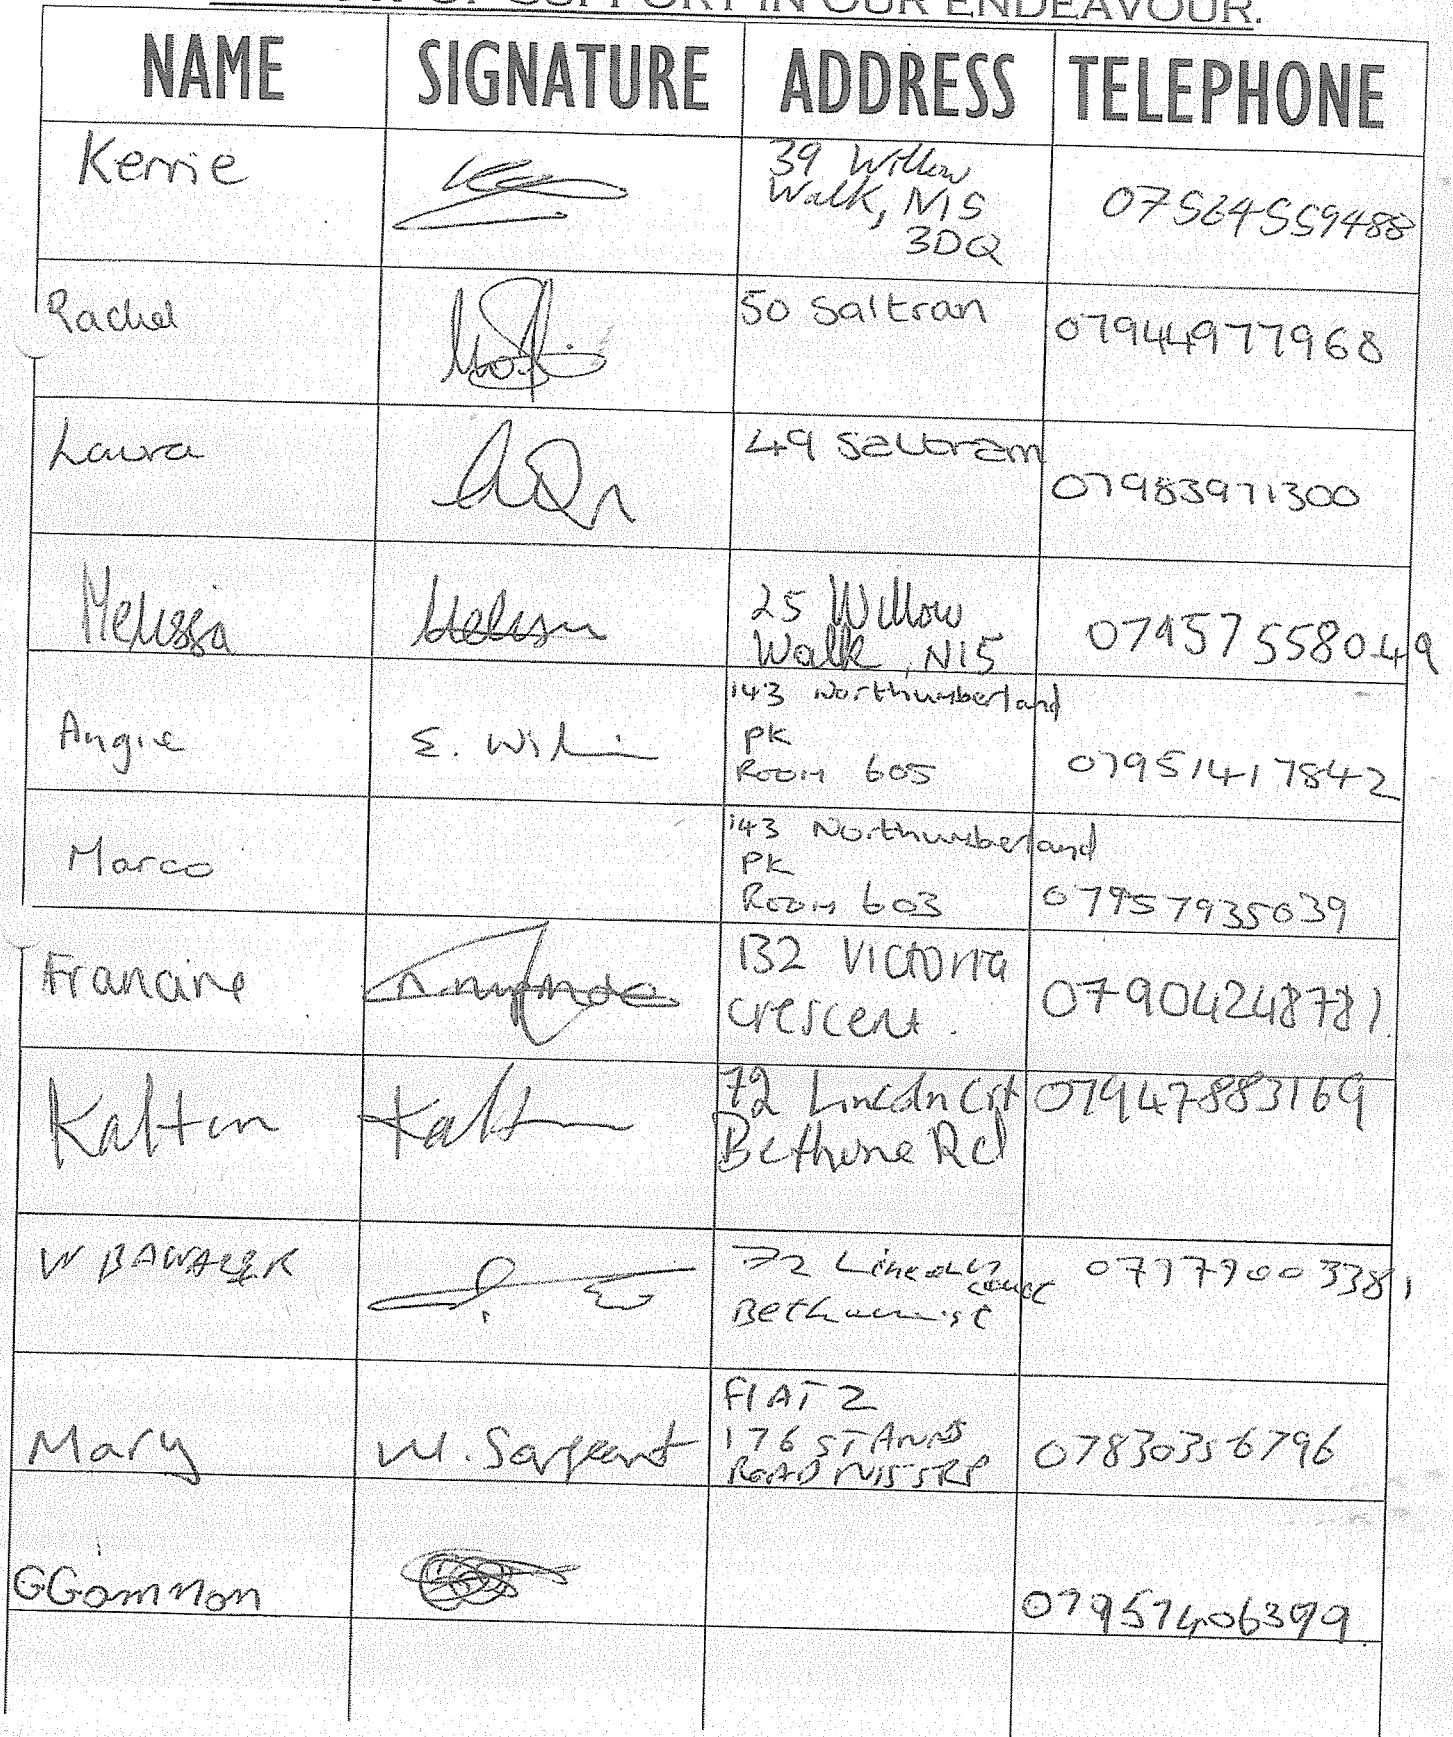 OF SUPPORT IN OUR ENDEAVOUR.
NAME SIGNATURE ADDRESS TELEPHONE
Kerrie 39 Willow
Walk, N15 07564559488
3DQ
Rachel 50 Saltran 07944977968
Laura 49 Saltram 07983971300
Melissa Melissa 25 Willow
Walk, N15 07957558049
Angie E. 143 Northumberland
PK
Room 605 07951417842
Marco 143 Northumberland
PK
Room 603 07957935039
Francine 132 Victoria
crescent. 07904248781
72 Lincoln Crt 07947883169
Bethune Rd
W 72 Lincoln 07979003381
court
Mary M. Sargeant FLAT 2
176 ST ANNS 07830356796
ROAD N15 5RP
GGammon 07957406399